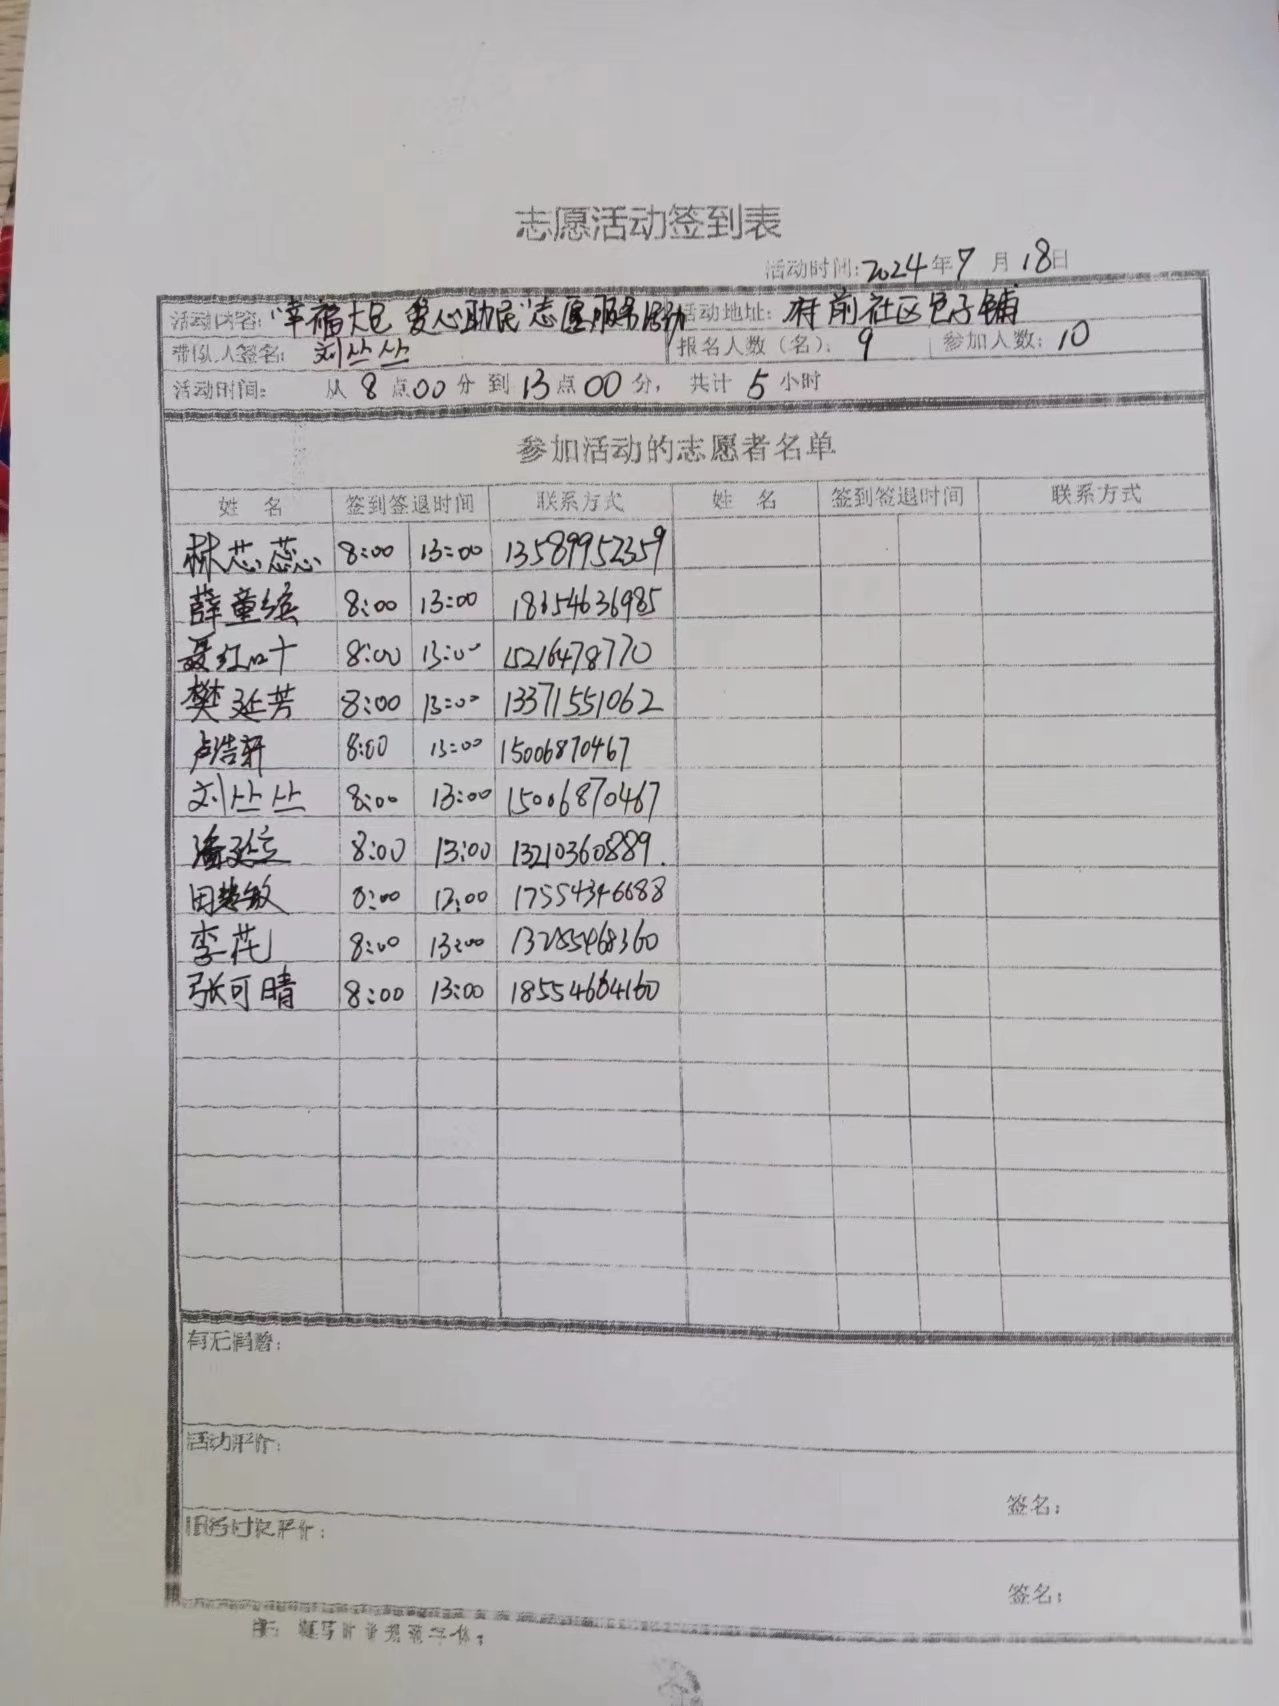 志愿活动签到表
活动时间:2024年7月18日
活动内容:"幸福大包 爱心助民"志愿服务活动 活动地址:府前社区包子铺
带队人签名:刘丛丛 报名人数(名):9 参加人数:10
活动时间: 从8点00分到13点00分,共计5小时
参加活动的志愿者名单
姓 名 签到签退时间 联系方式 姓 名 签到签退时间 联系方式
林芯蕊 8:00 13:00 13589952359
薛童缤 8:00 13:00 18654636985
聂红叶 8:00 13:00 15216478770
樊延芳 8:00 13:00 13371551062
卢浩轩 8:00 13:00 15006870467
刘丛丛 8:00 13:00 15006870467
潘延立 8:00 13:00 13210360889
田敏 8:00 13:00 17554346688
李芘 8:00 13:00 13285468360
张可晴 8:00 13:00 18554664160
有无捐赠:
活动评价:
签名:
服务对象评价:
签名:
注:填写时请规范字体;